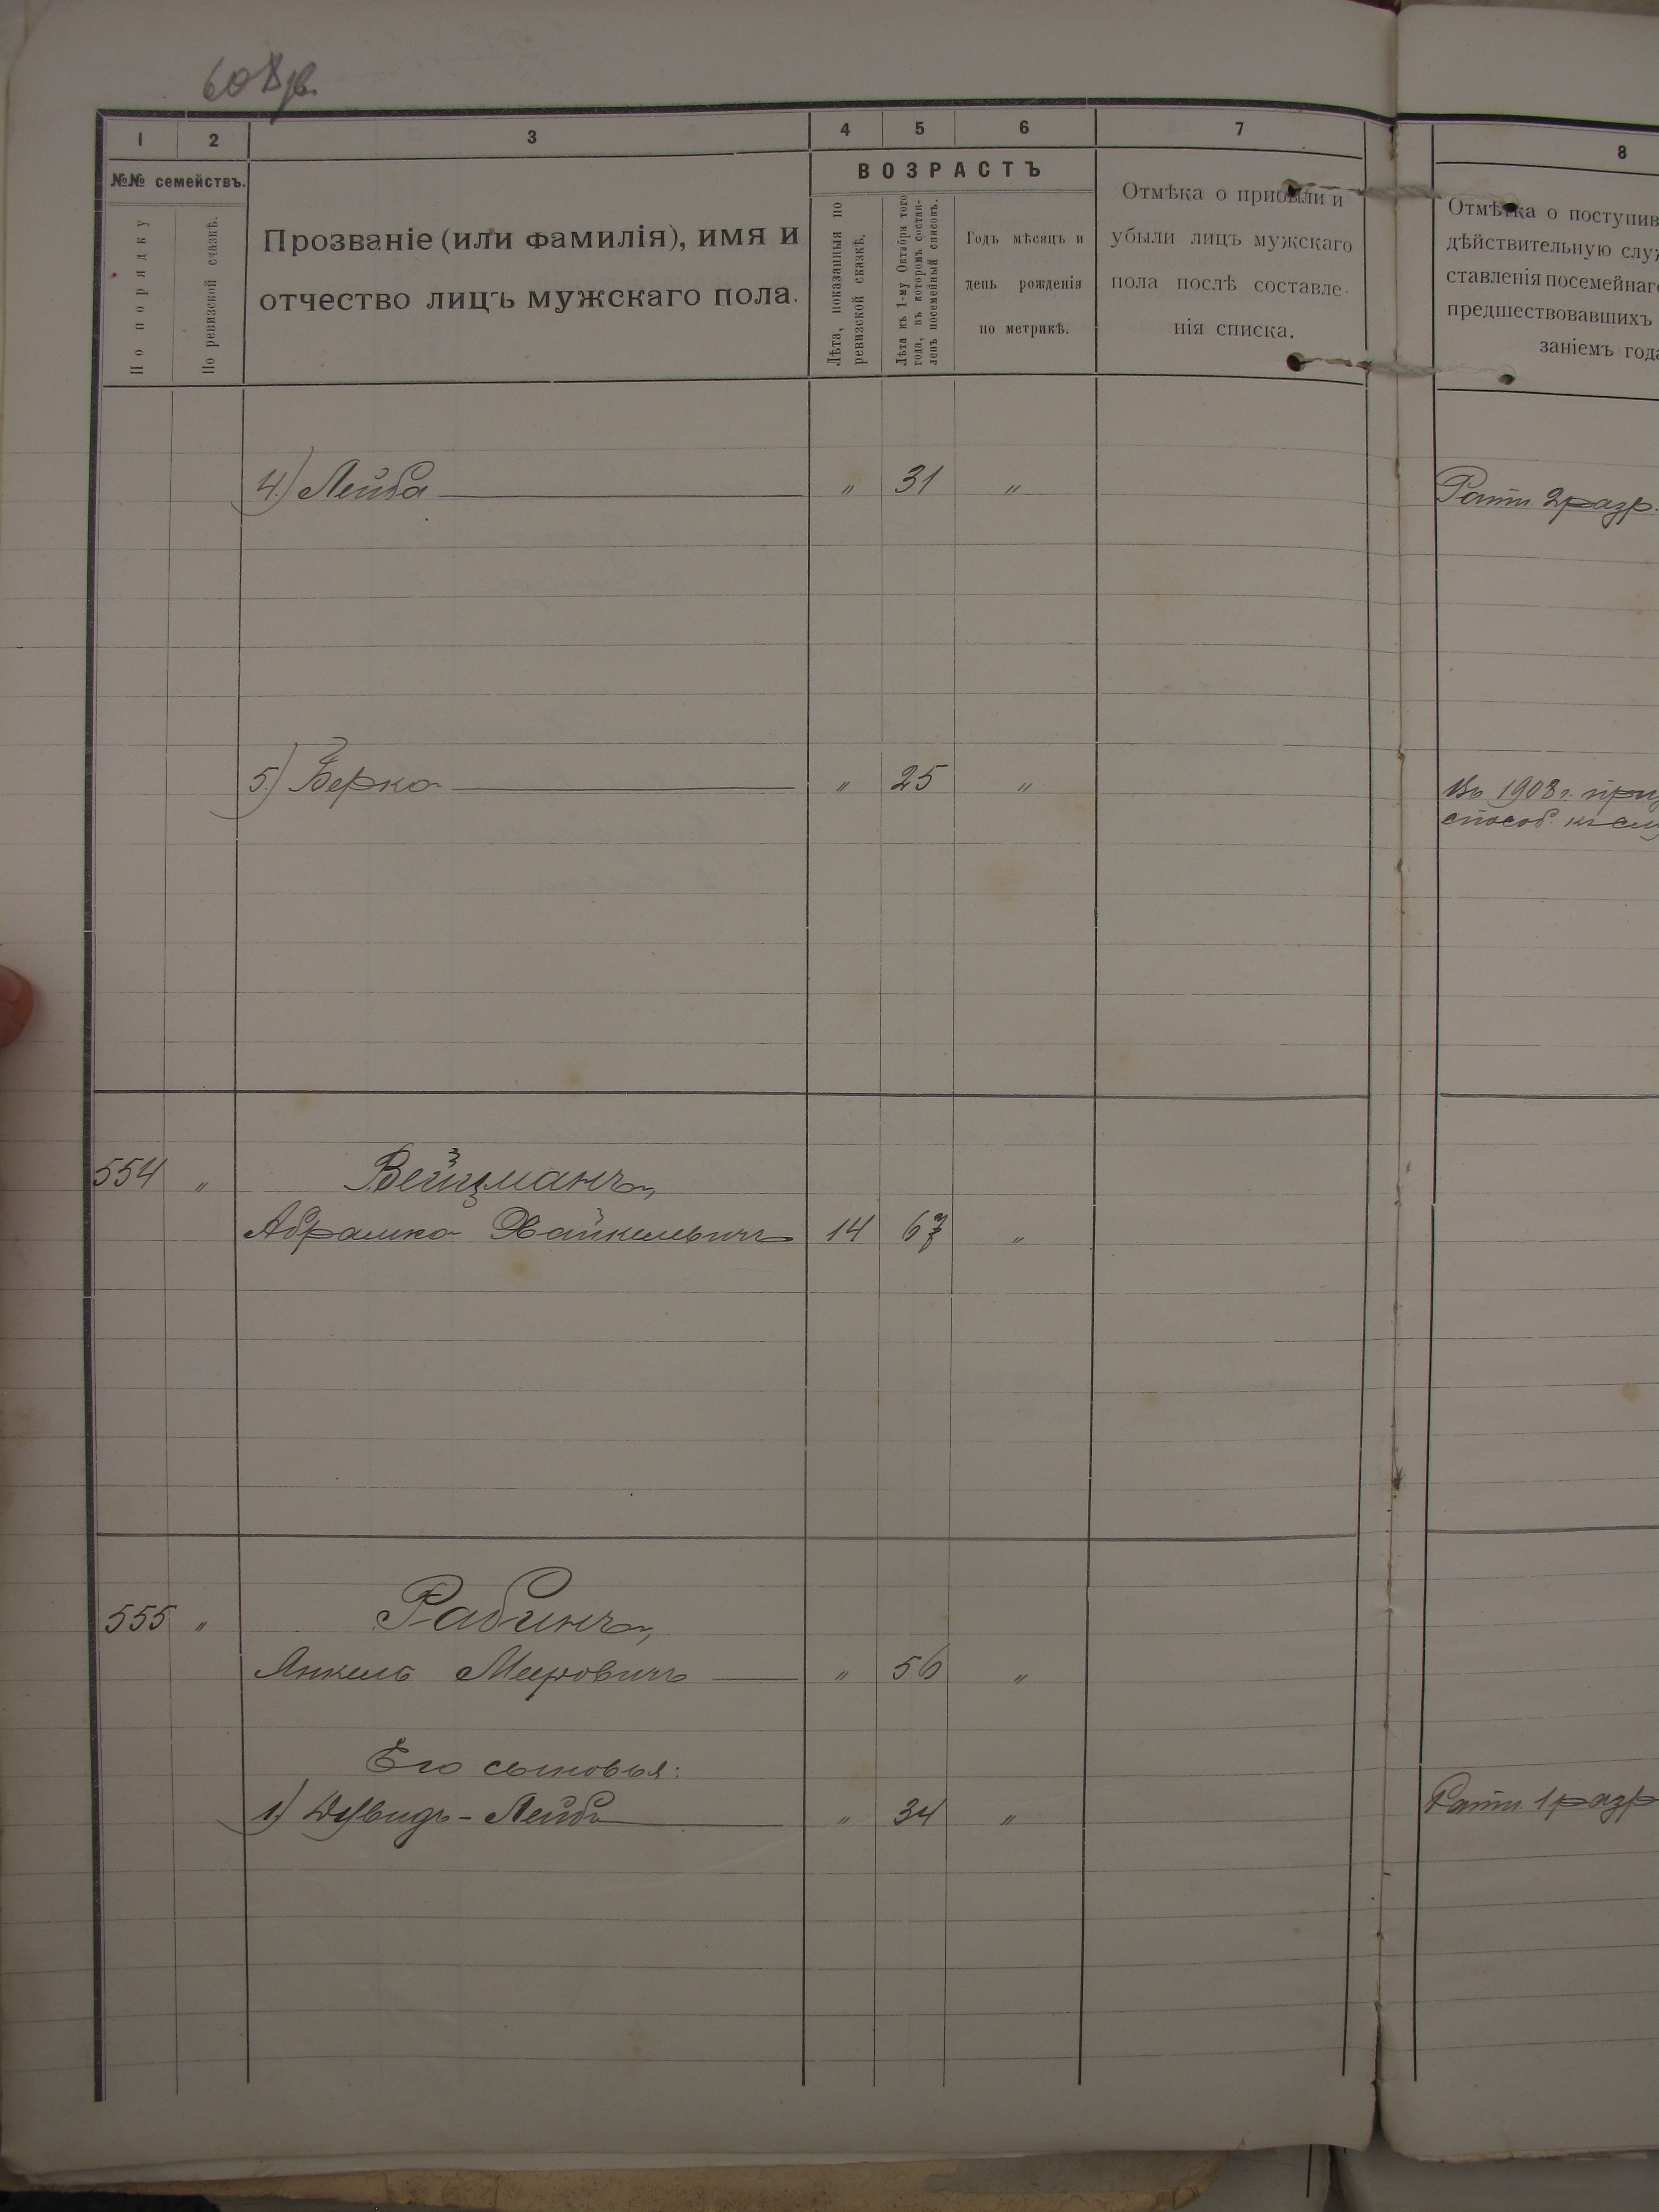 1 2 3 4 5 6 7 8
№№ семействъ.
По порядку
По ревизской сказкѣ.
Прозваніе (или фамилія), имя и
отчество лицъ мужскаго пола.
ВОЗРАСТЪ
Лѣта, показанныя по
ревизской сказкѣ.
Лѣта къ 1-му Октября того
года, въ которомъ состав-
ленъ посемейный списокъ.
Годъ мѣсяцъ и
день рожденія
по метрикѣ.
Отмѣка о прибыли и
убыли лицъ мужскаго
пола послѣ составле-
нія списка.
Отмѣтка о поступив
дѣйствительную служ
ставленія посемейнаго
предшествовавшихъ
заніемъ года
4.) Лейба " 31 " Ратн. 2 разр.
5.) Берко " 25 " Въ 1908 г. приз
способ. къ слу
554 " Вейцманъ,
Абрамко Хайкелевичъ 14 67 "
555 " Рабинъ,
Янкель Меировичъ " 56 "
Его сыновья:
1) Дувидъ-Лейбъ " 34 " Ратн. 1 разр